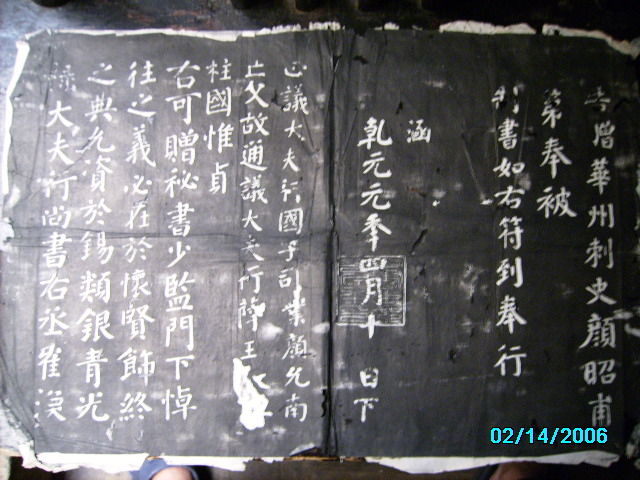 贈華州刺史顏昭甫
第奉被
書如右符到奉行
涵
乾元元年四月十日下
正議大夫行國子司業顏允南
亡父故通議大夫行薛王
柱國惟貞
右可贈秘書少監門下悼
往之義必在於懷賢飾終
之典允資於錫類銀青光
祿大夫行尚書右丞崔漪
02/14/2006